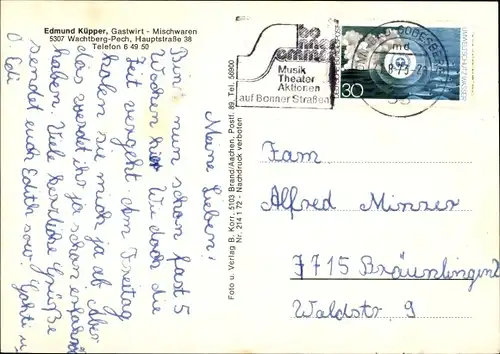 Edmund Küpper, Gastwirt - Mischwaren
5307 Wachtberg-Pech, Hauptstraße 38
Telefon 6 49 50
Meine Lieben!
Bin nun schon fast 5
Wochen hier. Wie doch die
Zeit vergeht. Am Freitag
holen sie mich ja ab. Aber
das werdet ihr ja schon erfahren
haben. Viele herzliche Grüße
sendet euch Edith sow.
Foto u. Verlag B. Korr, 5103 Brand/Aachen, Postf. 89, Tel. 56800
Nr. 214 1 72 - Nachdruck verboten
bonner
sommer
Musik
Theater
Aktionen
auf Bonner Straßen
30
Fam
Alfred Minzer
7715 Bräunlingen
Waldstr. 9